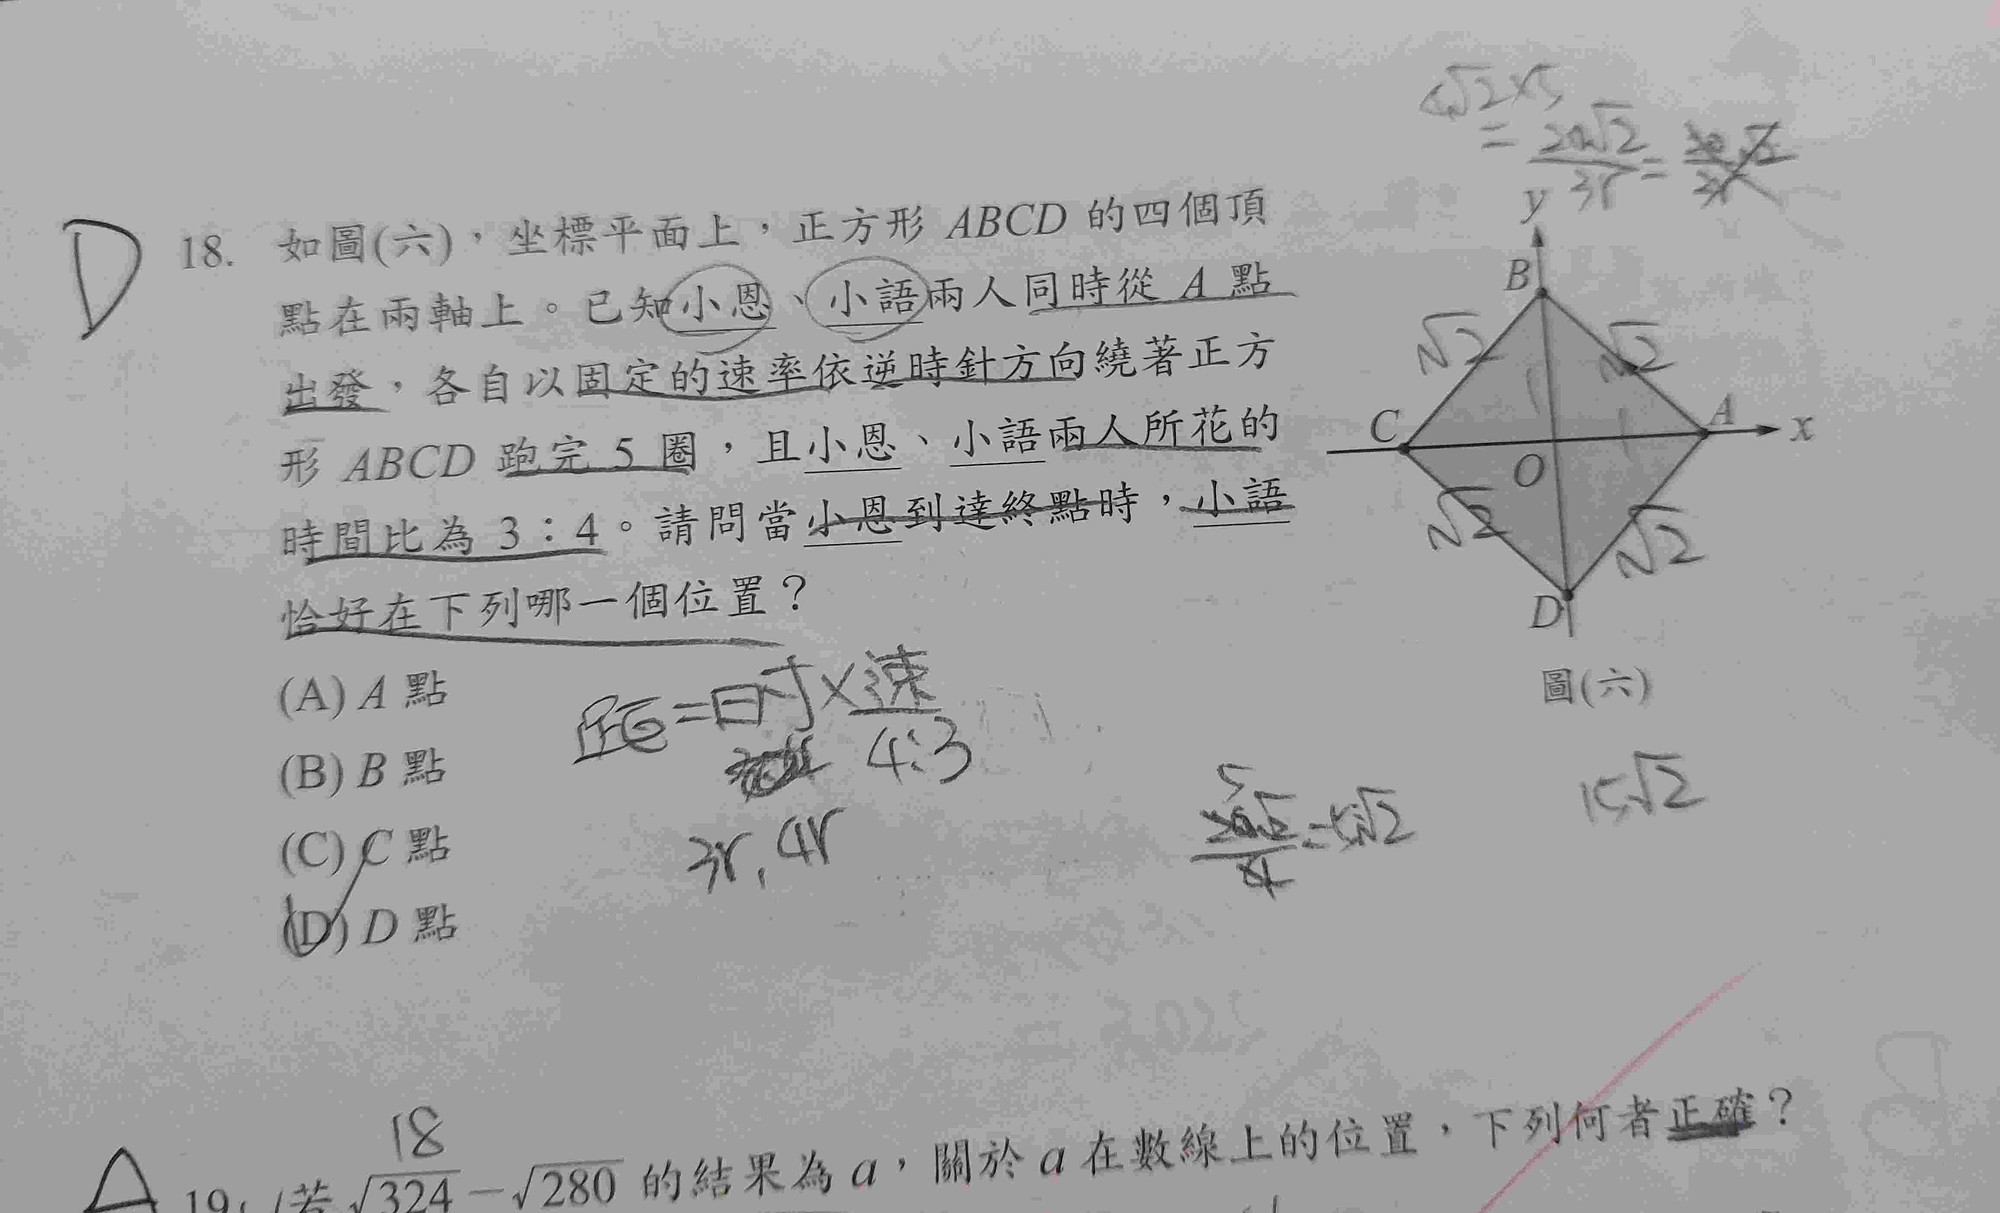 4√2×5
= 20√2/3r =
D
18. 如圖(六)，坐標平面上，正方形 ABCD 的四個頂
點在兩軸上。已知小恩、小語兩人同時從 A 點
出發，各自以固定的速率依逆時針方向繞著正方
形 ABCD 跑完 5 圈，且小恩、小語兩人所花的
時間比為 3：4。請問當小恩到達終點時，小語
恰好在下列哪一個位置？
(A) A 點
(B) B 點
(C) C 點
(D) D 點
y
B
√2 √2
C A x
O
√2 √2
D
圖(六)
距=時×速
4:3
3r, 4r
5
20√2/4 = 5√2
15√2
18
A 19. 若 √324 − √280 的結果為 a，關於 a 在數線上的位置，下列何者正確？